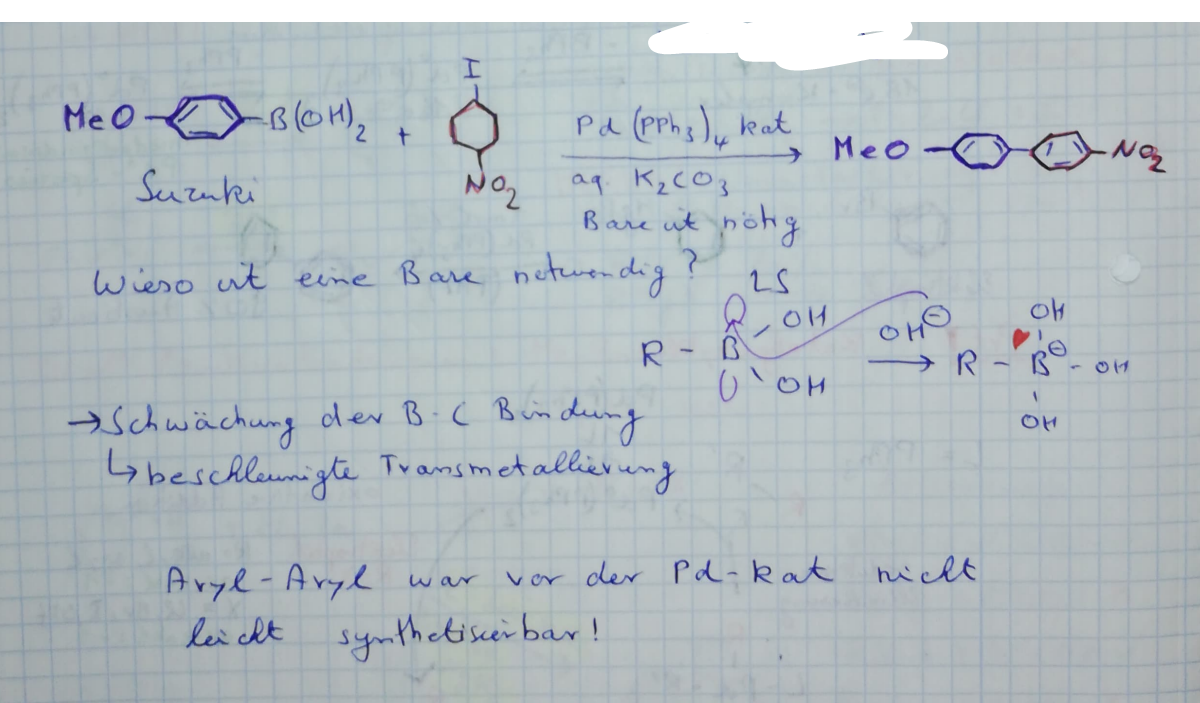 MeO B(OH)2 + I NO2 Pd(PPh3)4 kat MeO NO2
Suzuki aq. K2CO3
Base ist nötig
Wieso ist eine Base notwendig?
LS
R - B OH OH OH⊖ → R - B⊖ OH OH OH
→ Schwächung der B-C Bindung
↳ beschleunigte Transmetallierung
Aryl-Aryl war vor der Pd-kat nicht
leicht synthetisierbar!